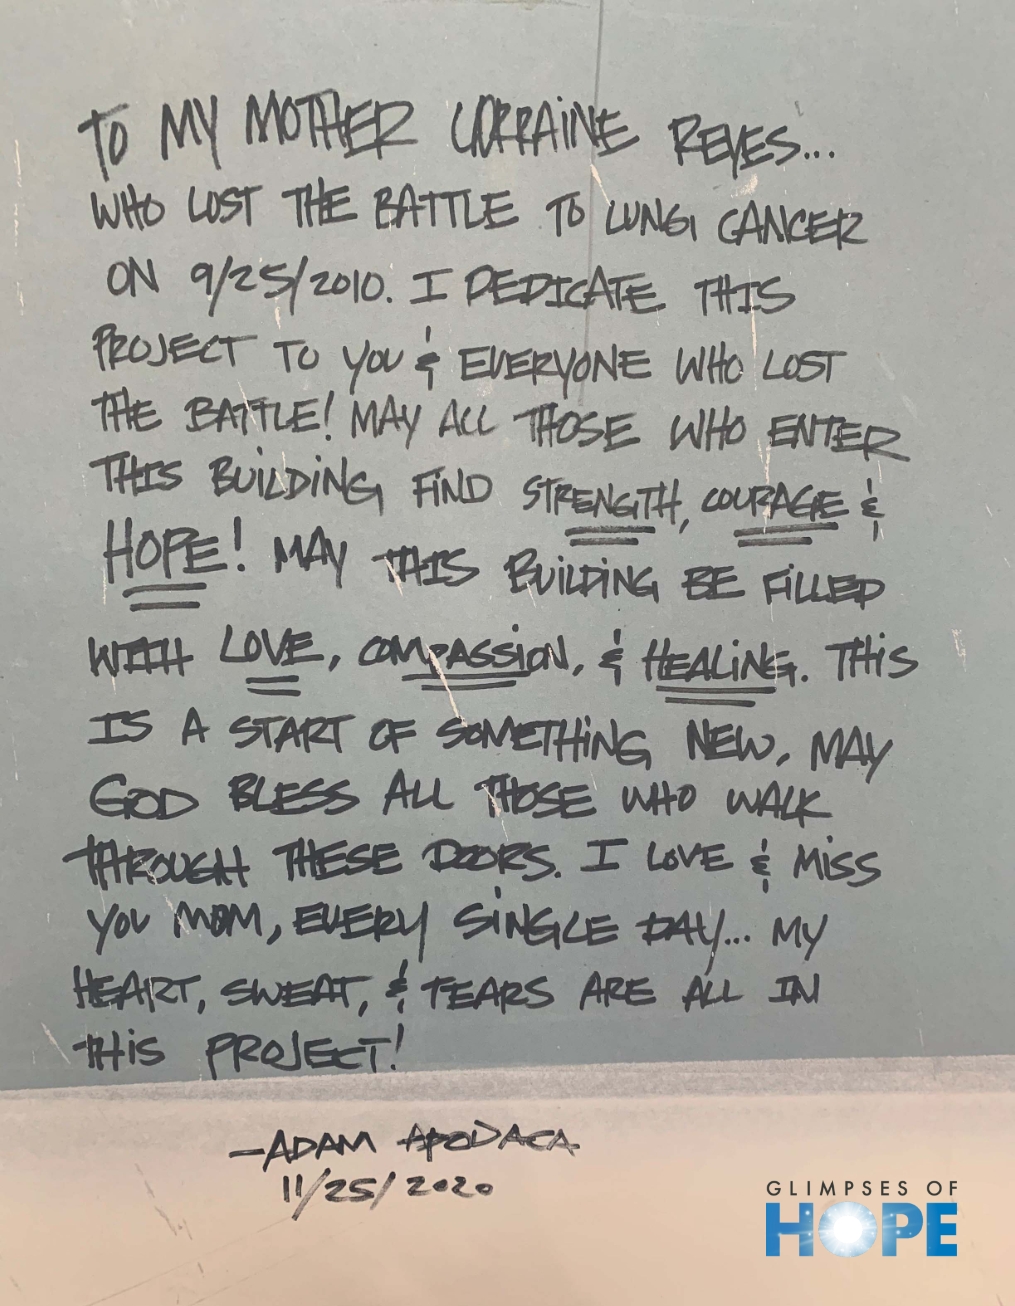 TO MY MOTHER LORRAINE REYES...
WHO LOST THE BATTLE TO LUNG CANCER
ON 9/25/2010. I DEDICATE THIS
PROJECT TO YOU & EVERYONE WHO LOST
THE BATTLE! MAY ALL THOSE WHO ENTER
THIS BUILDING FIND STRENGTH, COURAGE &
HOPE! MAY THIS BUILDING BE FILLED
WITH LOVE, COMPASSION, & HEALING. THIS
IS A START OF SOMETHING NEW, MAY
GOD BLESS ALL THOSE WHO WALK
THROUGH THESE DOORS. I LOVE & MISS
YOU MOM, EVERY SINGLE DAY... MY
HEART, SWEAT, & TEARS ARE ALL IN
THIS PROJECT!
-ADAM APODACA
11/25/2020
GLIMPSES OF
HOPE